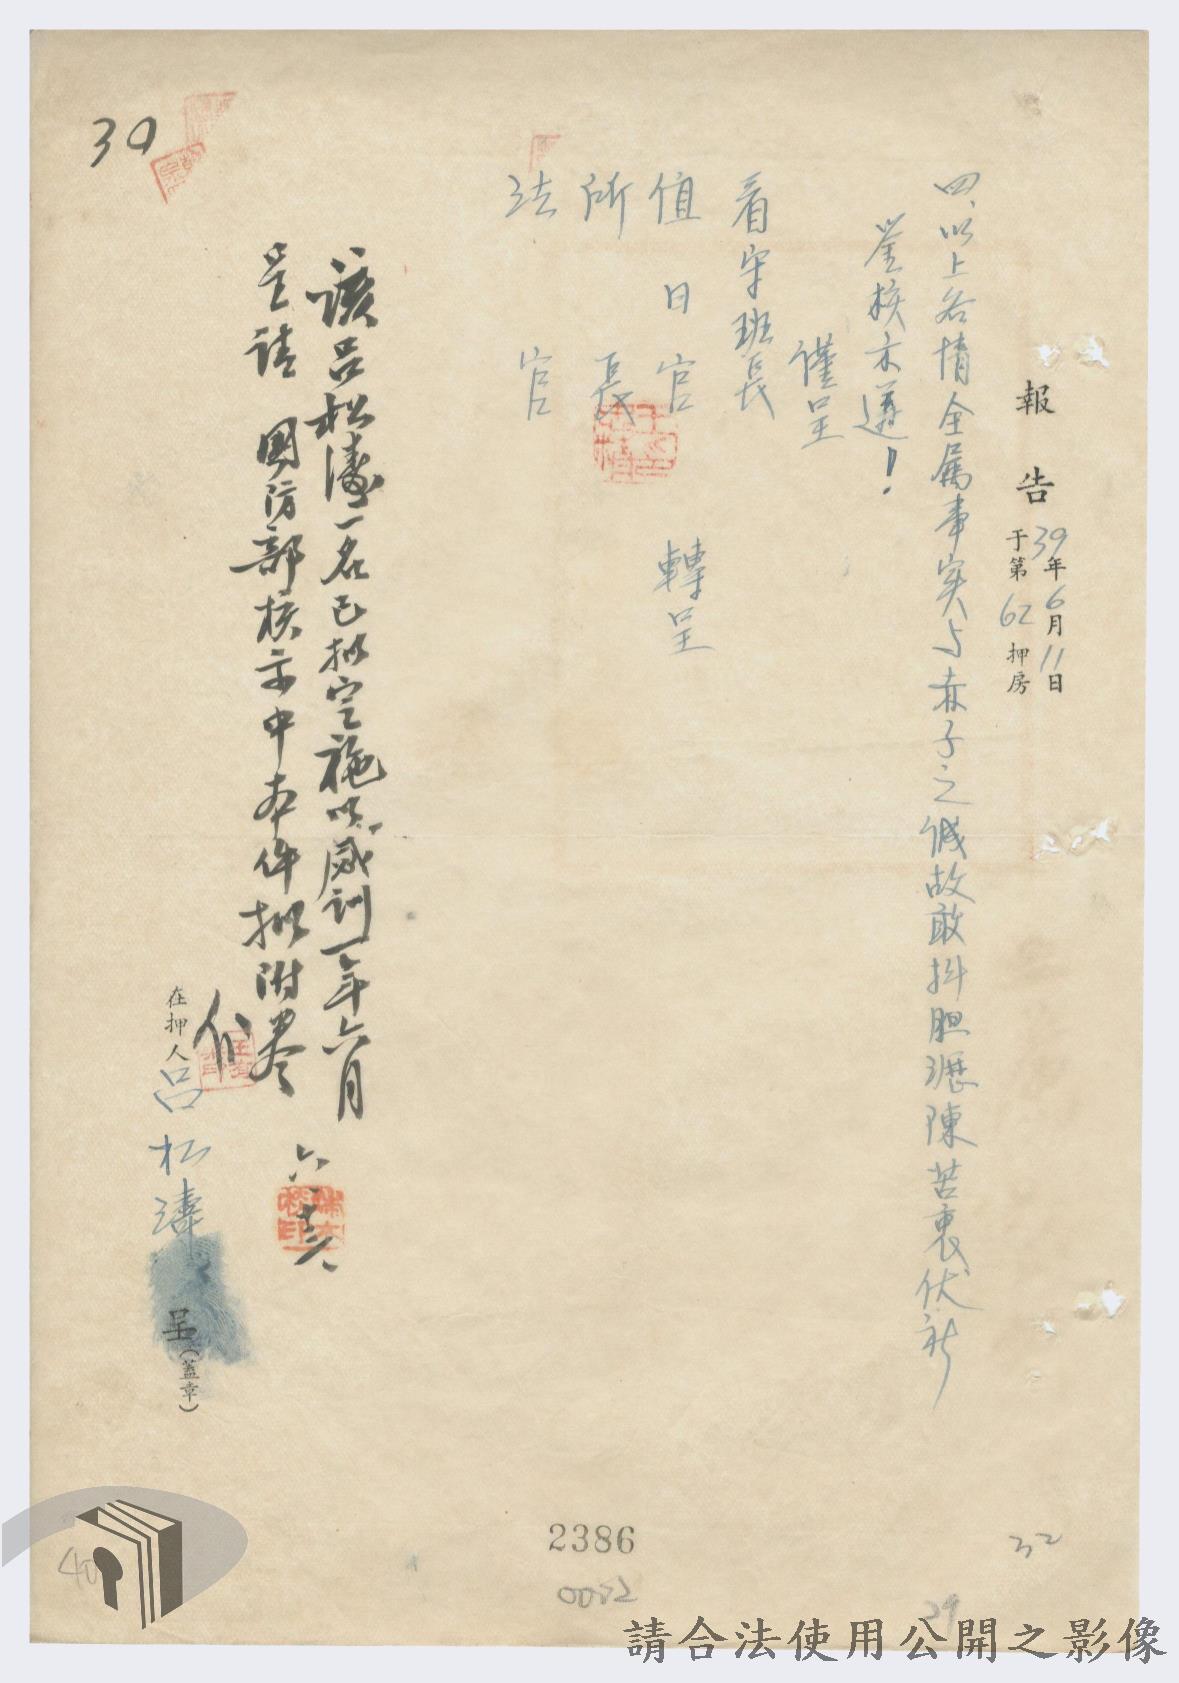 報告
39年6月11日
于第62押房
四、以上各情全属事実与赤子之誠故敢抖胆瀝陳苦衷伏祈
鉴核示遵！
謹呈
看守班長
值日官 轉呈
所長
法官
該呂松濤一名已拟定施以感訓一年六月
呈請 國防部核示中本件拟附卷
六、
在押人呂松濤呈(蓋章)
39
2386
32
29
40
請合法使用公開之影像